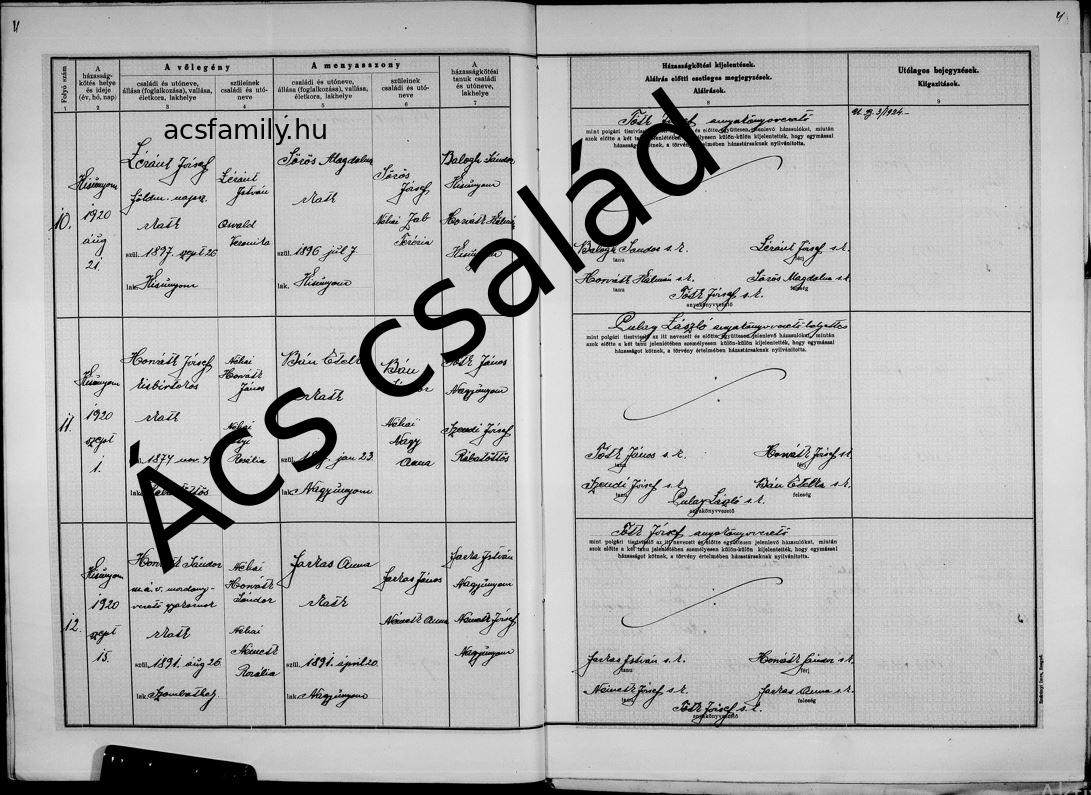 4
A vőlegény
A menyasszony
Folyó szám
A házasság-
kötés helye
és ideje
(év, hó, nap)
családi és utóneve,
állása (foglalkozása), vallása,
életkora, lakhelye
szüleinek
családi és utó-
neve
családi és utóneve,
állása (foglalkozása), vallása,
életkora, lakhelye
szüleinek
családi és utó-
neve
A
házasságkötési
tanuk családi
és utóneve,
lakhelye
Házasságkötési kijelentések.
Aláírás előtti esetleges megjegyzések.
Aláírások.
Utólagos bejegyzések.
Kiigazítások.
1 2 3 4 5 6 7 8 9
acsfamily.hu
Ács család
10.
Kisunyom
1920
aug
21.
József
földm.
szül. 1897. szept 26
lak. Kisunyom
István
Osvald
Veronika
Sörös Magdolna
szül. 1896 júl 7.
lak. Kisunyom
Sörös
József
Néhai
Terézia
Balogh Sándor
Kisunyom
Horváth Kálmán
Kisunyom
Tóth József anyakönyvvezető
mint polgári tisztviselő az itt nevezett és előtte együttesen jelenlevő házasulókat, miután
azok előtte a két tanu jelenlétében személyesen külön-külön kijelentették, hogy egymással
házasságot kötnek, a törvény értelmében házastársaknak nyilvánította.
Balogh Sándor s.k.
tanu
József s.k.
férj
Horváth Kálmán s.k.
tanu
Sörös Magdolna s.k.
feleség
Tóth József s.k.
anyakönyvvezető
3/1924.
11.
Kisunyom
1920
szept
1.
Horváth József
kisbirtokos
1874 nov. 4
Néhai
Horváth
János
Néhai
Rozália
Bán Etelka
jan 23
lak. Nagyunyom
Bán
Néhai
Nagy
Anna
Tóth János
Nagyunyom
Szendi József
Rábatöttös
Pulay László anyakönyvvezető helyettes
mint polgári tisztviselő az itt nevezett és előtte együttesen jelenlevő házasulókat, miután
azok előtte a két tanu jelenlétében személyesen külön-külön kijelentették, hogy egymással
házasságot kötnek, a törvény értelmében házastársaknak nyilvánította.
Tóth János s.k.
tanu
Horváth József s.k.
férj
Szendi József s.k.
tanu
Bán Etelka s.k.
feleség
Pulay László s.k.
anyakönyvvezető
12.
Kisunyom
1920
szept
15.
Horváth Sándor
m.á.v.
szül. 1891. aug 26
lak. Szombathely
Néhai
Horváth
Sándor
Néhai
Németh
Rozália
Farkas Anna
szül. 1891. április 20
lak. Nagyunyom
Farkas János
Németh Anna
Farkas István
Nagyunyom
Németh József
Nagyunyom
Tóth József anyakönyvvezető
mint polgári tisztviselő az itt nevezett és előtte együttesen jelenlevő házasulókat, miután
azok előtte a két tanu jelenlétében személyesen külön-külön kijelentették, hogy egymással
házasságot kötnek, a törvény értelmében házastársaknak nyilvánította.
Farkas István s.k.
tanu
Horváth Sándor s.k.
férj
Németh József s.k.
tanu
Farkas Anna s.k.
feleség
Tóth József s.k.
anyakönyvvezető